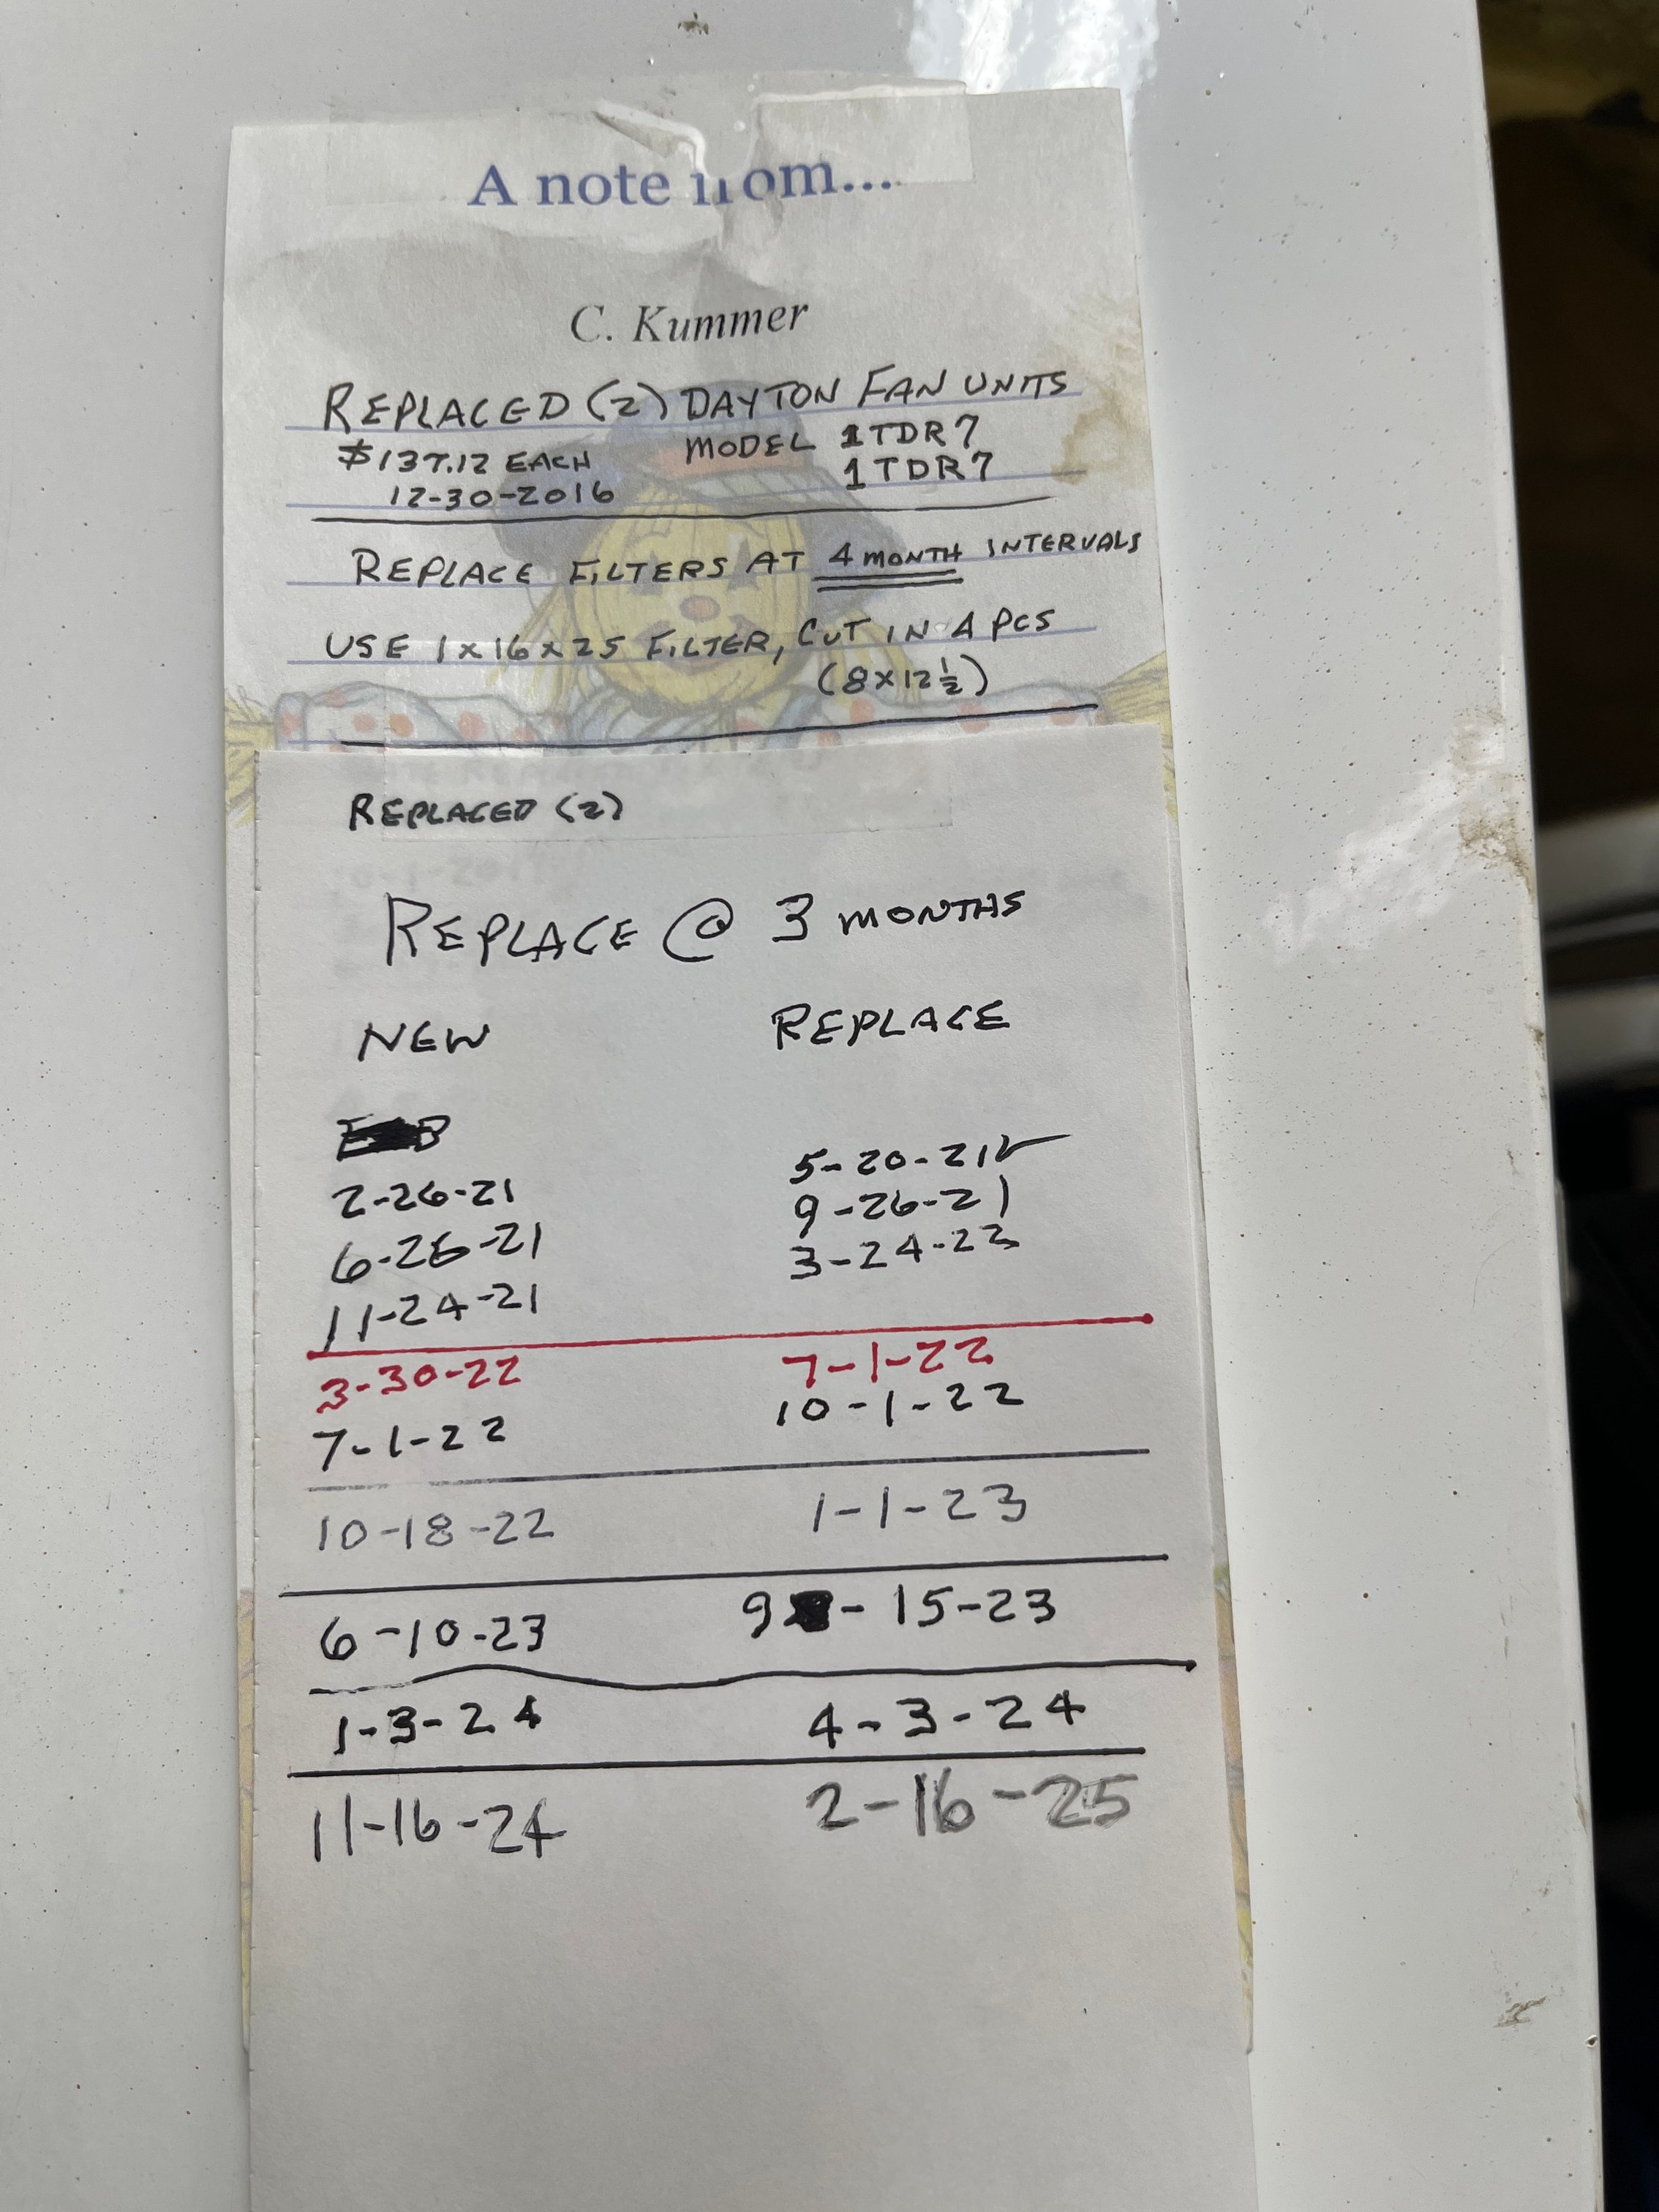 A note from....
C. Kummer
REPLACED (2) DAYTON FAN UNITS
$137.12 EACH MODEL 1TDR7
12-30-2016 1TDR7
REPLACE FILTERS AT 4 MONTH INTERVALS
USE 1x16x25 FILTER, CUT IN 4 PCS
(8x12½)
REPLACED (2)
REPLACE @ 3 MONTHS
NEW REPLACE
2-26-21 5-20-21✓
6-26-21 9-26-21
11-24-21 3-24-22
3-30-22 7-1-22
7-1-22 10-1-22
10-18-22 1-1-23
6-10-23 9-15-23
1-3-24 4-3-24
11-16-24 2-16-25